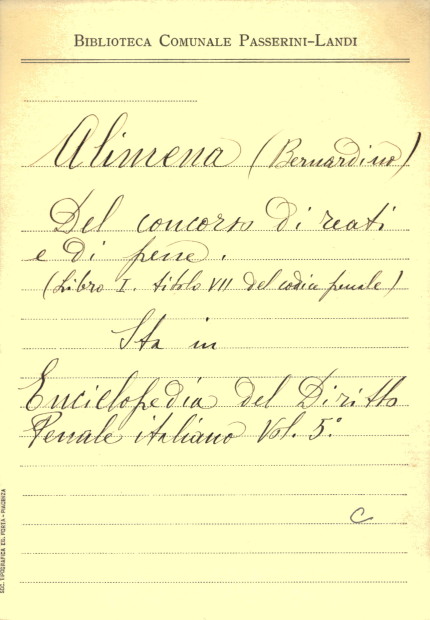 BIBLIOTECA COMUNALE PASSERINI-LANDI
Alimena (Bernardino)
Del concorso di reati
e di pene.
(Libro I. titolo VII del codice penale)
Sta in
Enciclopedia del Diritto
Penale italiano Vol. 5.°
C
SOC. TIPOGRAFICA ED. PORTA - PIACENZA